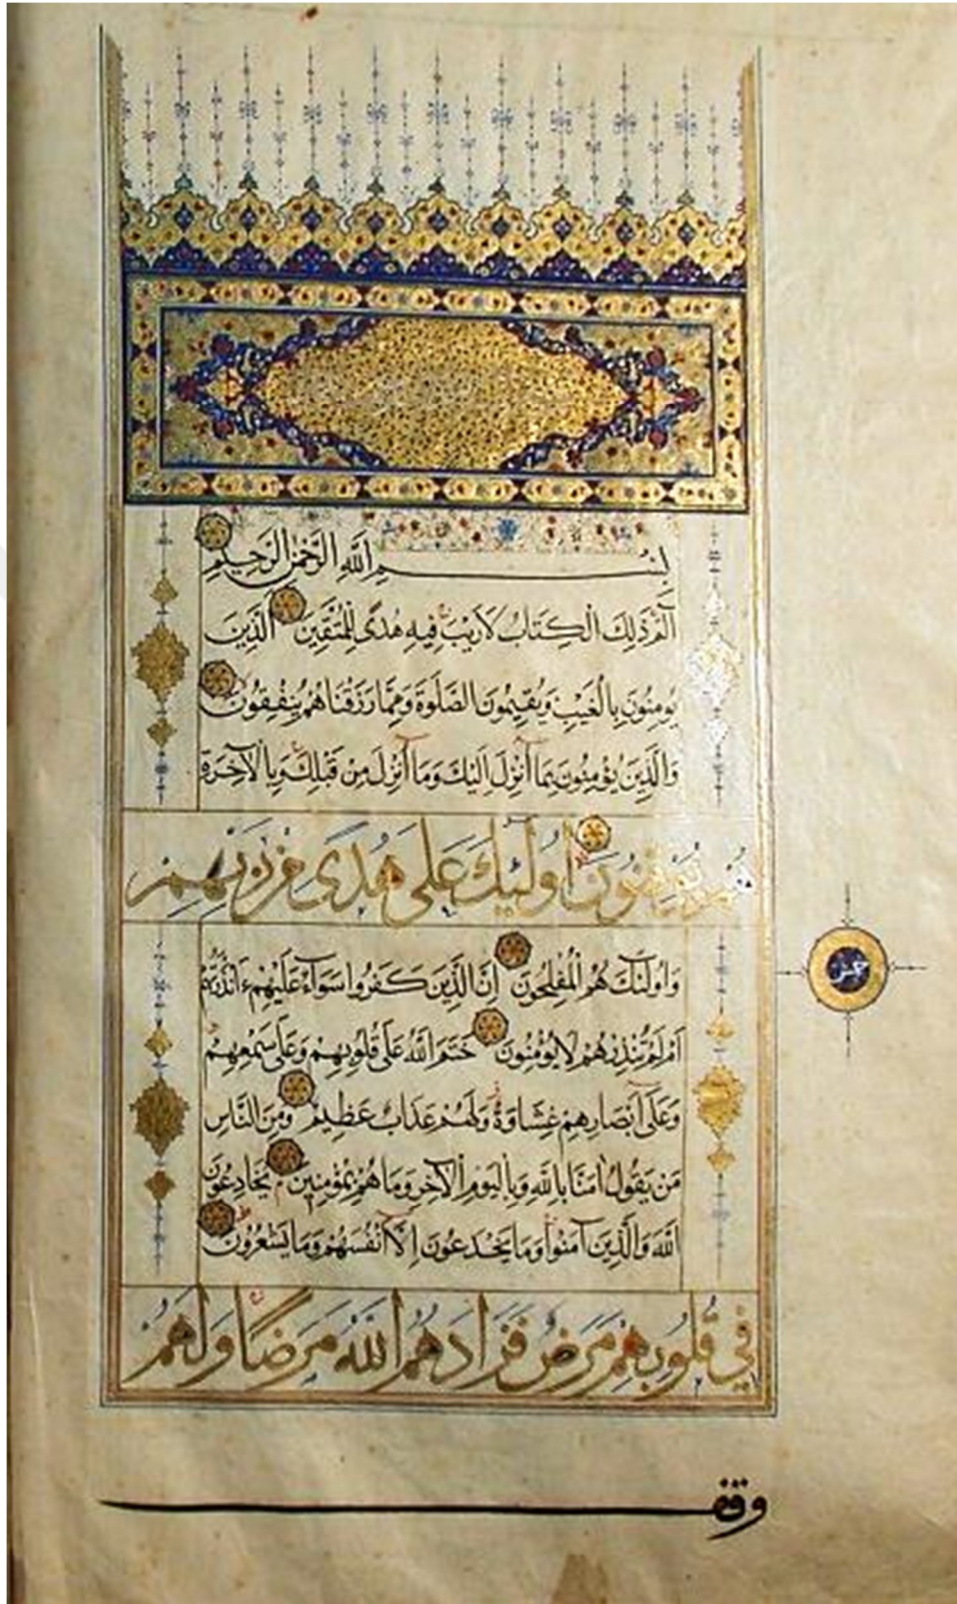 بِسْمِ اللَّهِ الرَّحْمٰنِ الرَّحِيمِ
الٓمٓ ذٰلِكَ الْكِتَابُ لَارَيْبَ فِيهِ هُدًى لِلْمُتَّقِينَ الَّذِينَ
يُؤْمِنُونَ بِالْغَيْبِ وَيُقِيمُونَ الصَّلٰوةَ وَمِمَّا رَزَقْنَاهُمْ يُنْفِقُونَ
وَالَّذِينَ يُؤْمِنُونَ بِمَا أُنْزِلَ إِلَيْكَ وَمَا أُنْزِلَ مِنْ قَبْلِكَ وَبِالْآخِرَةِ
هُمْ يُوقِنُونَ أُولٰئِكَ عَلَى هُدًى مِنْ رَبِّهِمْ
وَأُولٰئِكَ هُمُ الْمُفْلِحُونَ إِنَّ الَّذِينَ كَفَرُوا سَوَاءٌ عَلَيْهِمْ ءَأَنْذَرْتَهُمْ
أَمْ لَمْ تُنْذِرْهُمْ لَا يُؤْمِنُونَ خَتَمَ اللَّهُ عَلَى قُلُوبِهِمْ وَعَلَى سَمْعِهِمْ
وَعَلَى أَبْصَارِهِمْ غِشَاوَةٌ وَلَهُمْ عَذَابٌ عَظِيمٌ وَمِنَ النَّاسِ
مَنْ يَقُولُ آمَنَّا بِاللَّهِ وَبِالْيَوْمِ الْآخِرِ وَمَا هُمْ بِمُؤْمِنِينَ يُخَادِعُونَ
اللَّهَ وَالَّذِينَ آمَنُوا وَمَا يَخْدَعُونَ إِلَّا أَنْفُسَهُمْ وَمَا يَشْعُرُونَ
فِي قُلُوبِهِمْ مَرَضٌ فَزَادَهُمُ اللَّهُ مَرَضًا وَلَهُمْ
وقف